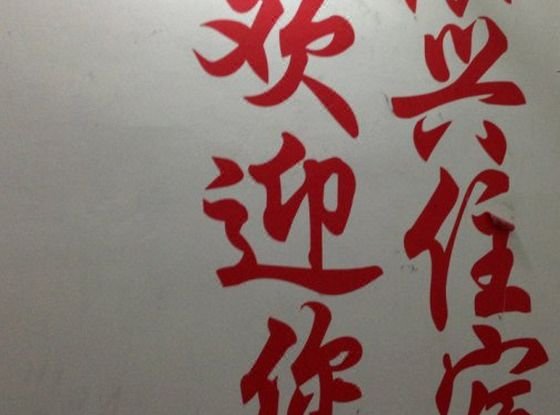 兴住宿
欢迎你